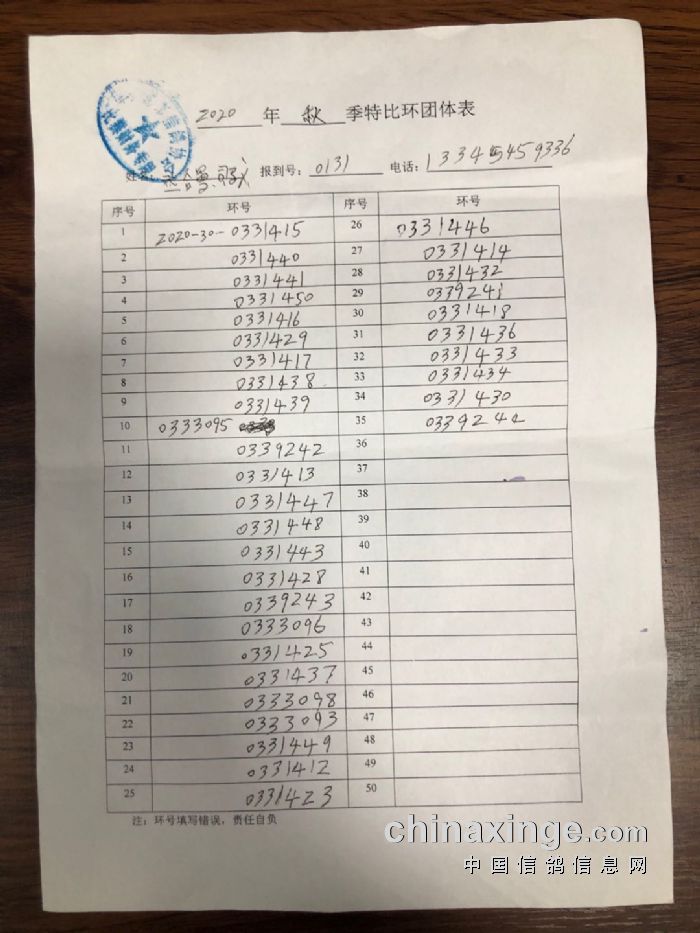 2020 年 秋 季特比环团体表
报到号: 0131 电话:
序号 环号 序号 环号
1 2020-30-0331415 26 0331446
2 0331440 27 0331414
3 0331441 28 0331432
4 0331450 29 0339241
5 0331416 30 0331418
6 0331429 31 0331436
7 0331417 32 0331433
8 0331438 33 0331434
9 0331439 34 0331430
10 0333095 35
11 0339242 36
12 0331413 37
13 0331447 38
14 0331448 39
15 0331443 40
16 0331428 41
17 0339243 42
18 0333096 43
19 0331425 44
20 0331437 45
21 0333098 46
22 0333093 47
23 0331449 48
24 0331412 49
25 0331423 50
注: 环号填写错误, 责任自负
chinaxinge.com
中国信鸽信息网